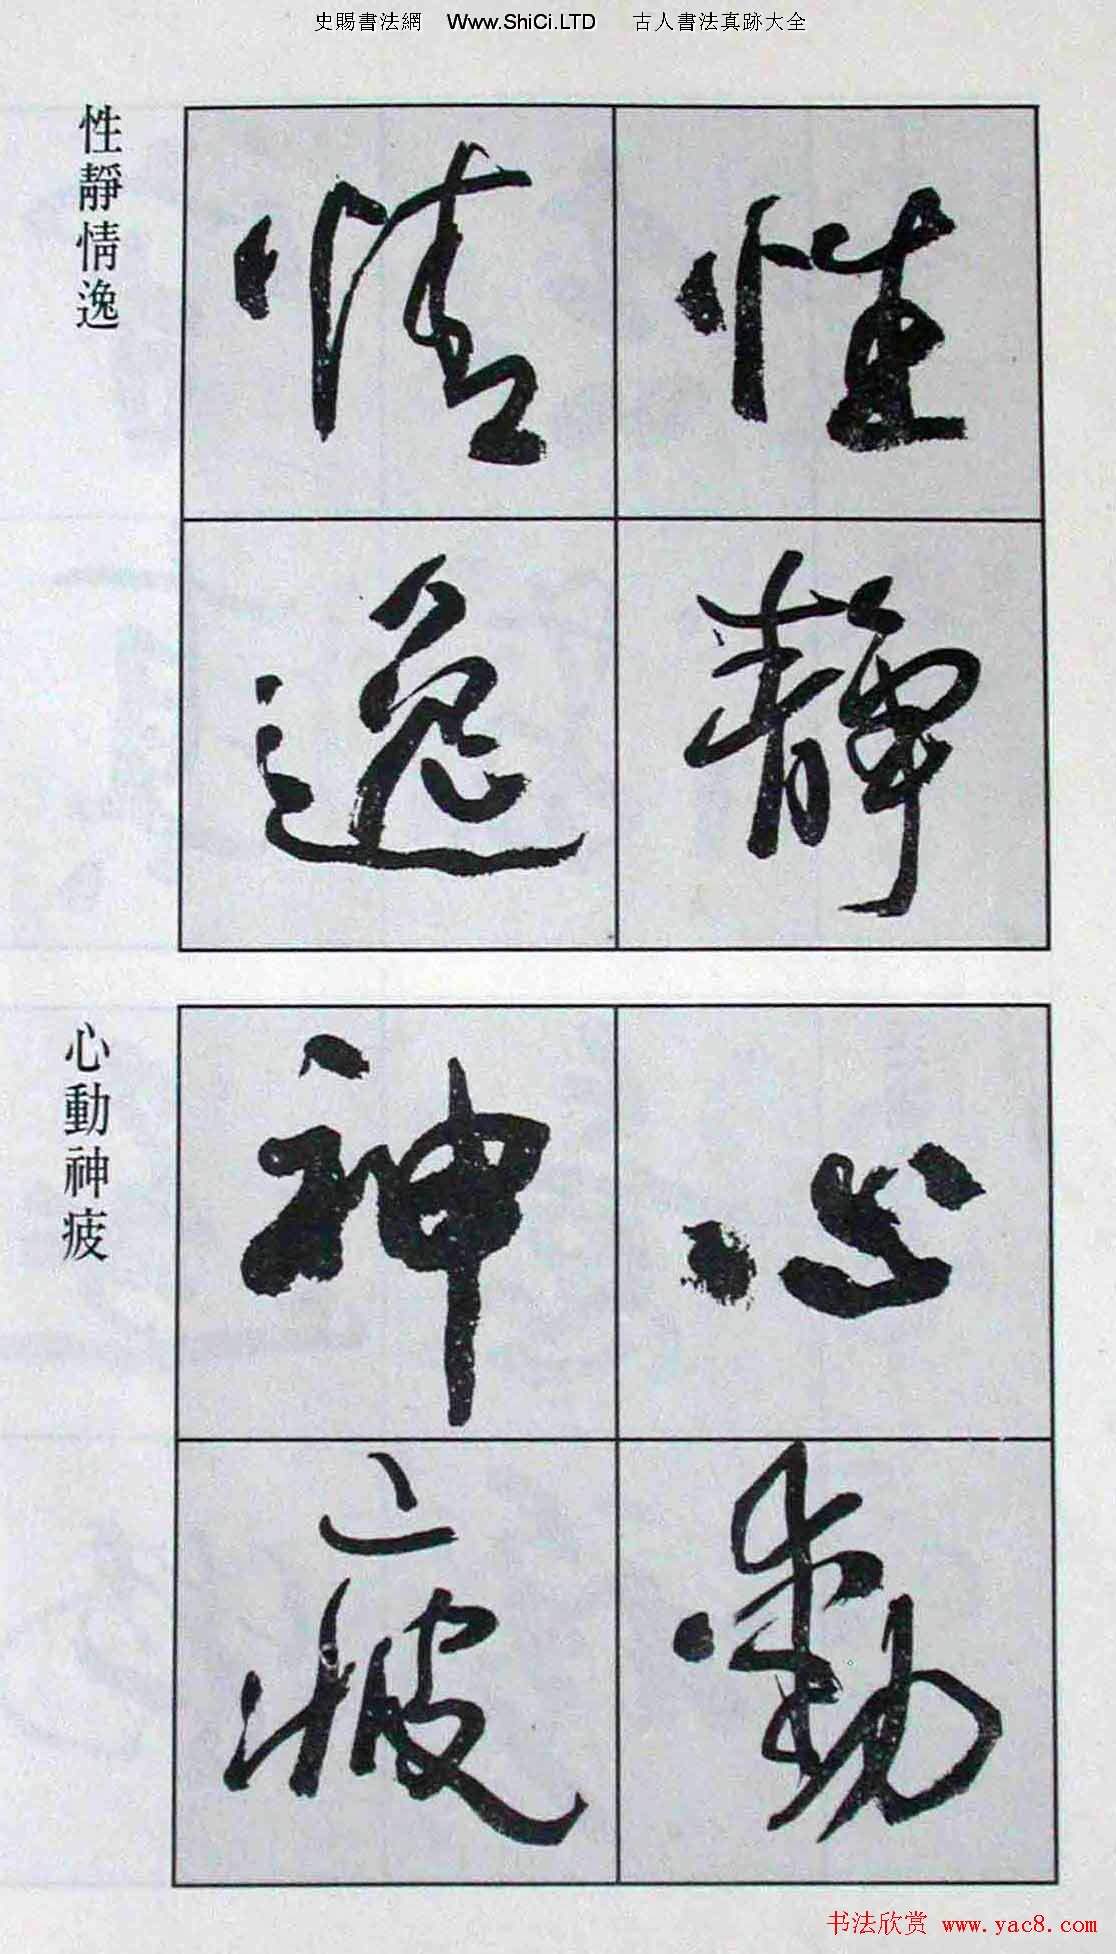 史賜書法網 Www.ShiCi.LTD 古人書法真跡大全
性靜
情逸
性靜情逸
心動
神疲
心動神疲
书法欣赏 www.yac8.com